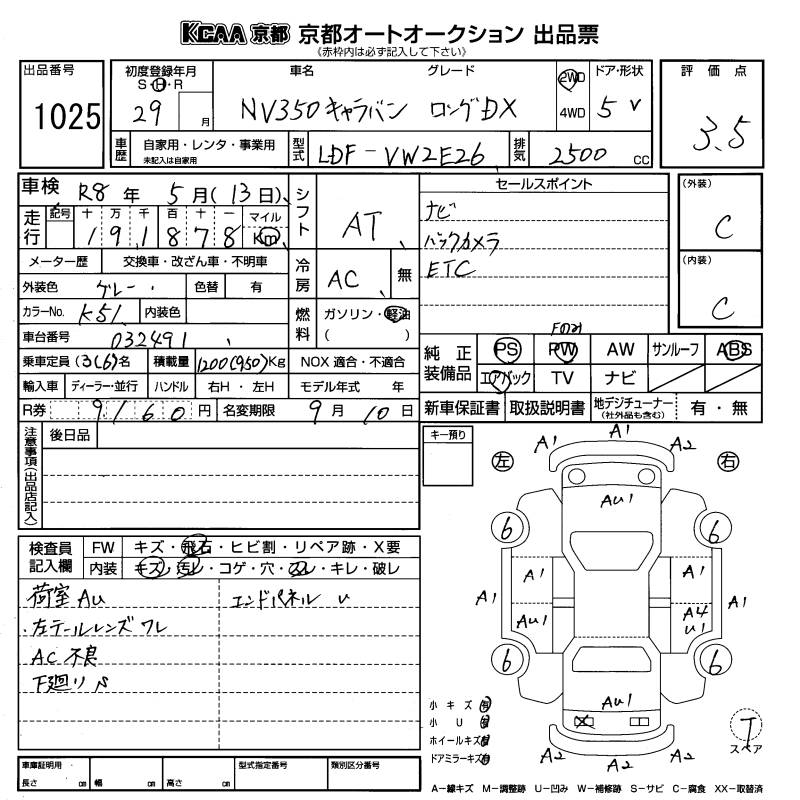 KCAA 京都 京都オートオークション 出品票
《赤枠内は必ず記入して下さい》
出品番号
1025
初度登録年月
S・H・R
29 月
車名 グレード
NV350キャラバン ロングDX
2WD
4WD
ドア・形状
5 V
評価点
3.5
車歴
自家用・レンタ・事業用
未記入は自家用
型式
LDF-VW2E26
排気
2500 cc
車検 R8 年 5 月 (13 日)
走行
記号 十 万 千 百 十 一 マイル
1 9 1 8 7 8 Km
メーター歴 交換車・改ざん車・不明車
外装色 グレー 色替 有
カラーNo. K51 内装色
車台番号 032491
乗車定員 (3(6)名 積載量 1200(950)Kg NOX 適合・不適合
輸入車 ディーラー・並行 ハンドル 右H・左H モデル年式 年
R券 9160 円 名変期限 9 月 10 日
シフト
AT
冷房
AC 無
燃料
ガソリン・軽油
( )
セールスポイント
ナビ
バックカメラ
ETC
(外装)
C
(内装)
C
純正装備品
PS PW AW サンルーフ ABS
エアバック TV ナビ
新車保証書 取扱説明書 地デジチューナー
(社外品も含む)
有・無
注意事項(出品店記入)
後日品
キー預り
検査員記入欄
FW キズ・飛石・ヒビ割・リペア跡・X要
内装 キズ・汚レ・コゲ・穴・スレ・キレ・破レ
荷室 AU
エンドパネル U
・左テールレンズ ワレ
AC 不良
下廻り S
左
右
A1
A1
A2
AU1
6
6
A1
A1
A1
AU1
A4
U1
A1
6
6
AU1
A2
A2
A2
小キズ 有
小 U 有
ホイールキズ 有
ドアミラーキズ 有
T
スペア
車庫証明用
長さ cm 幅 cm 高さ cm
型式指定番号
類別区分番号
A−線キズ M−調整跡 U−凹み W−補修跡 S−サビ C−腐食 XX−取替済